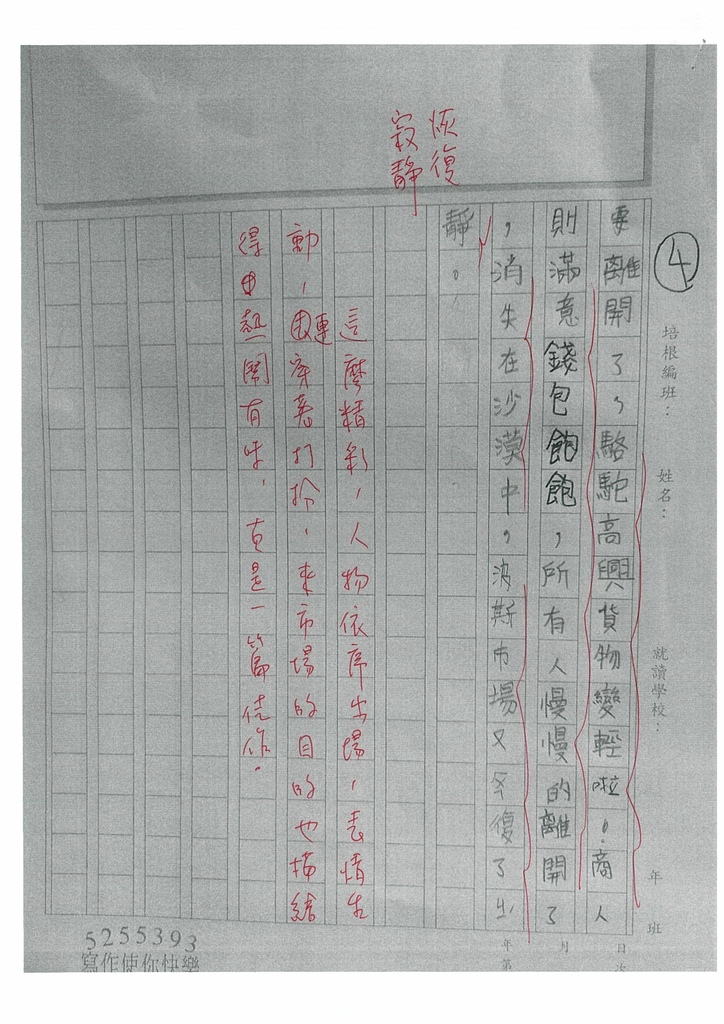 ④
培根編班：
姓名：
就讀學校：
年
班
恢復
寂靜
要離開了，駱駝高興貨物變輕啦。商人
則滿意錢包飽飽，所有人慢慢的離開了
，消失在沙漠中，波斯市場又冬復了
靜。
這麼精彩，人物依序出場，表情生
動，連穿著打扮、來市場的目的也描繪
得熱鬧有味，真是一篇佳作。
年 月 日
第 次
5255393
寫作使你快樂